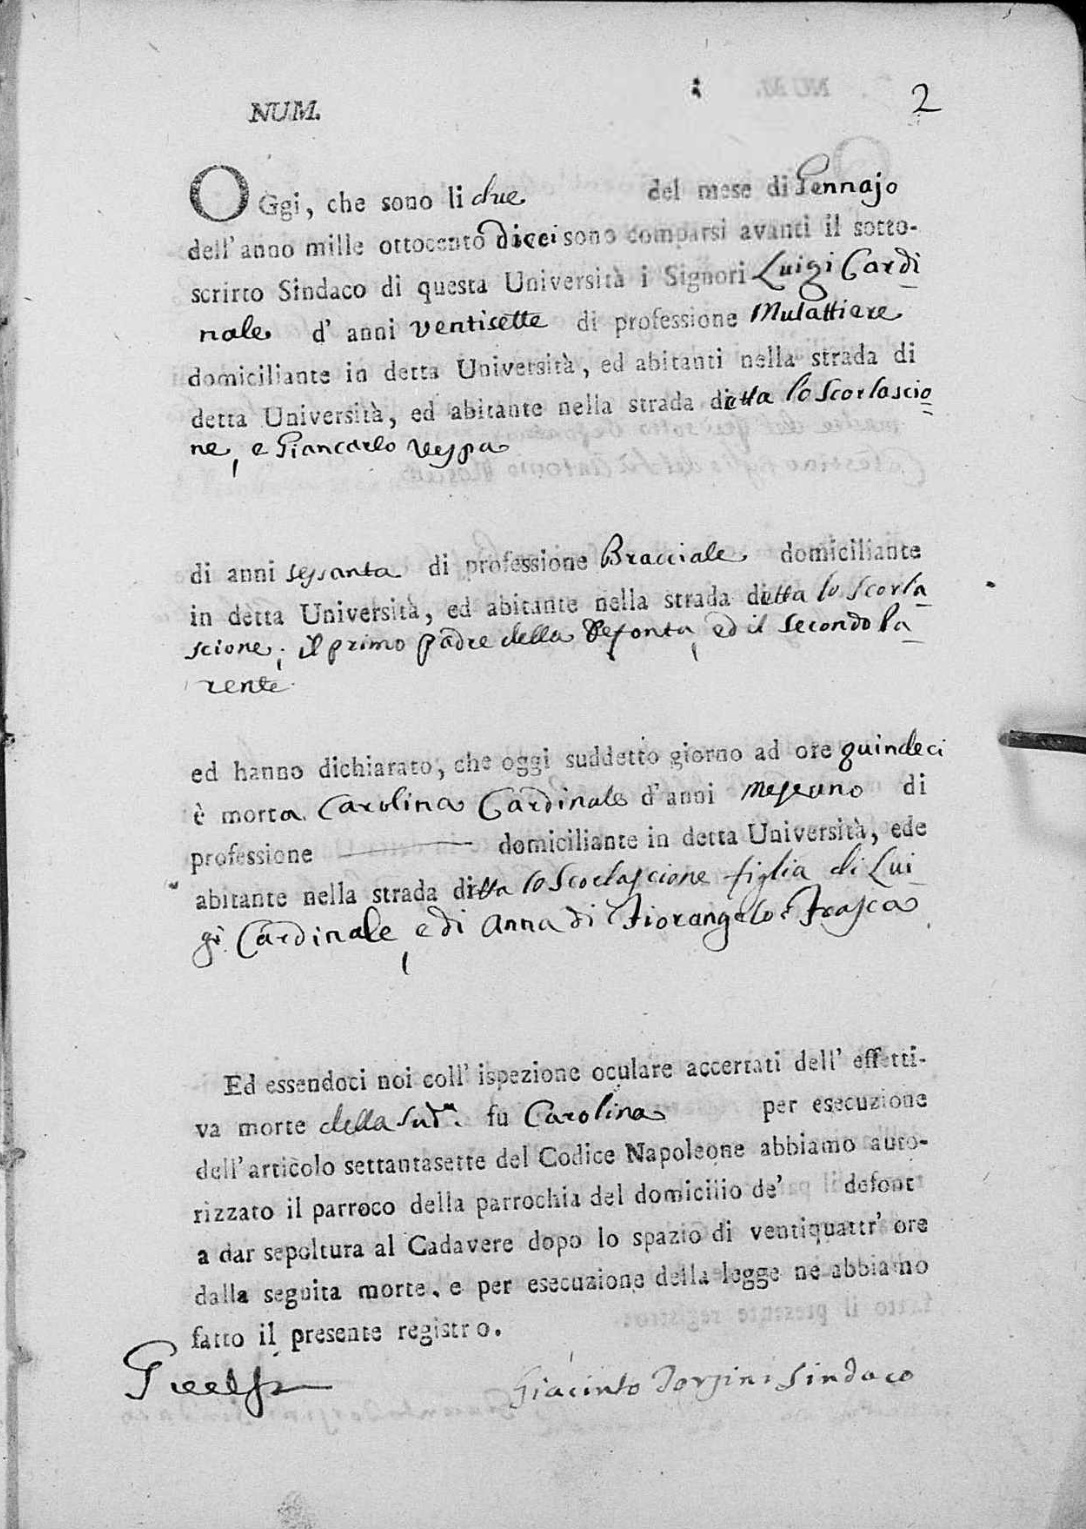 NUM.
2
OGgi, che sono li due del mese di Gennajo
dell'anno mille ottocento dieci sono comparsi avanti il sotto-
scritto Sindaco di questa Università i Signori Luigi Cardi
nale d' anni ventisette di professione Mulattiere
domiciliante in detta Università, ed abitanti nella strada di
detta Università, ed abitante nella strada detta lo Scorlascio
ne, e Giancarlo Vespa
di anni sessanta di professione Bracciale domiciliante
in detta Università, ed abitante nella strada ditta lo Scorla
scione; il primo padre della Defonta, ed il secondo Pa
rente
ed hanno dichiarato, che oggi suddetto giorno ad ore quindeci
è morta Carolina Cardinale d'anni mese uno di
professione ——— domiciliante in detta Università, ede
abitante nella strada ditta lo figlia di Lui
gi Cardinale, e di Anna di Fiorangelo Frasca
Ed essendoci noi coll' ispezione oculare accertati dell' effetti-
va morte della sudª. fu Carolina per esecuzione
dell'articolo settantasette del Codice Napoleone abbiamo auto-
rizzato il parroco della parrochia del domicilio de' defont
a dar sepoltura al Cadavere dopo lo spazio di ventiquattr' ore
dalla seguita morte, e per esecuzione della legge ne abbiamo
fatto il presente registro.
Giacinto Sindaco